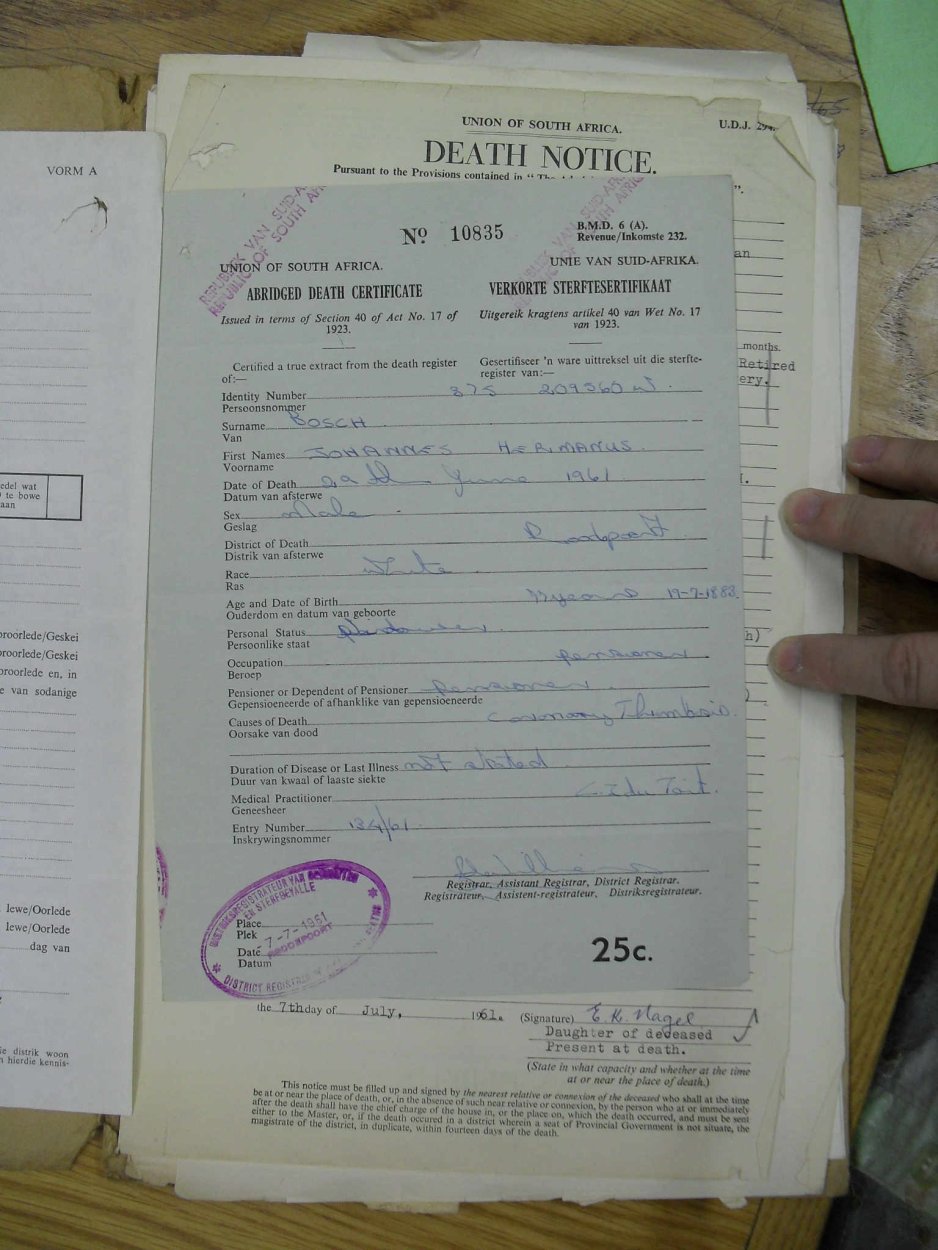 VORM A
UNION OF SOUTH AFRICA.
U.D.J.
DEATH NOTICE.
Pursuant to the Provisions contained in
REPUBLIEK VAN SUID-A
REPUBLIC OF SOUTH AFRI
Nº 10835
B.M.D. 6 (A).
Revenue/Inkomste 232.
UNION OF SOUTH AFRICA.
UNIE VAN SUID-AFRIKA.
ABRIDGED DEATH CERTIFICATE
VERKORTE STERFTESERTIFIKAAT
Issued in terms of Section 40 of Act No. 17 of
1923.
Uitgereik kragtens artikel 40 van Wet No. 17
van 1923.
Certified a true extract from the death register
of:—
Gesertifiseer 'n ware uittreksel uit die sterfte-
register van:—
Identity Number 375 209360 W
Persoonsnommer
Surname BOSCH
Van
First Names JOHANNES HERMANUS
Voorname
Date of Death 29th June 1961
Datum van afsterwe
Sex Male
Geslag
District of Death Roodepoort
Distrik van afsterwe
Race White
Ras
Age and Date of Birth years
Ouderdom en datum van geboorte
Personal Status
Persoonlike staat
Occupation pensioner
Beroep
Pensioner or Dependent of Pensioner pensioner
Gepensioeneerde of afhanklike van gepensioeneerde
Causes of Death Coronary Thrombosis
Oorsake van dood
Duration of Disease or Last Illness not stated
Duur van kwaal of laaste siekte
Medical Practitioner du Toit.
Geneesheer
Entry Number 134/61
Inskrywingsnommer
Registrar, Assistant Registrar, District Registrar.
Registrateur, Assistent-registrateur, Distriksregistrateur.
DISTRIKSREGISTRATEUR VAN
EN STERFGEVALLE
Place
Plek
-7-7-1961
Date
ROODEPOORT
Datum
DISTRICT REGISTRAR
25c.
months.
Retired
ery.
an
h)
edel wat
te bowe
aan
oorlede/Geskei
oorlede/Geskei
oorlede en, in
e van sodanige
lewe/Oorlede
lewe/Oorlede
dag van
ie distrik woon
n hierdie kennis-
the 7th day of July, 1961.
(Signature) E. K. Nagel
Daughter of deceased
Present at death.
(State in what capacity and whether at the time
at or near the place of death.)
This notice must be filled up and signed by the nearest relative or connexion of the deceased who shall at the time
be at or near the place of death, or, in the absence of such near relative or connexion, by the person who at or immediately
after the death shall have the chief charge of the house in, or the place on, which the death occurred, and must be sent
either to the Master, or, if the death occured in a district wherein a seat of Provincial Government is not situate, the
magistrate of the district, in duplicate, within fourteen days of the death.